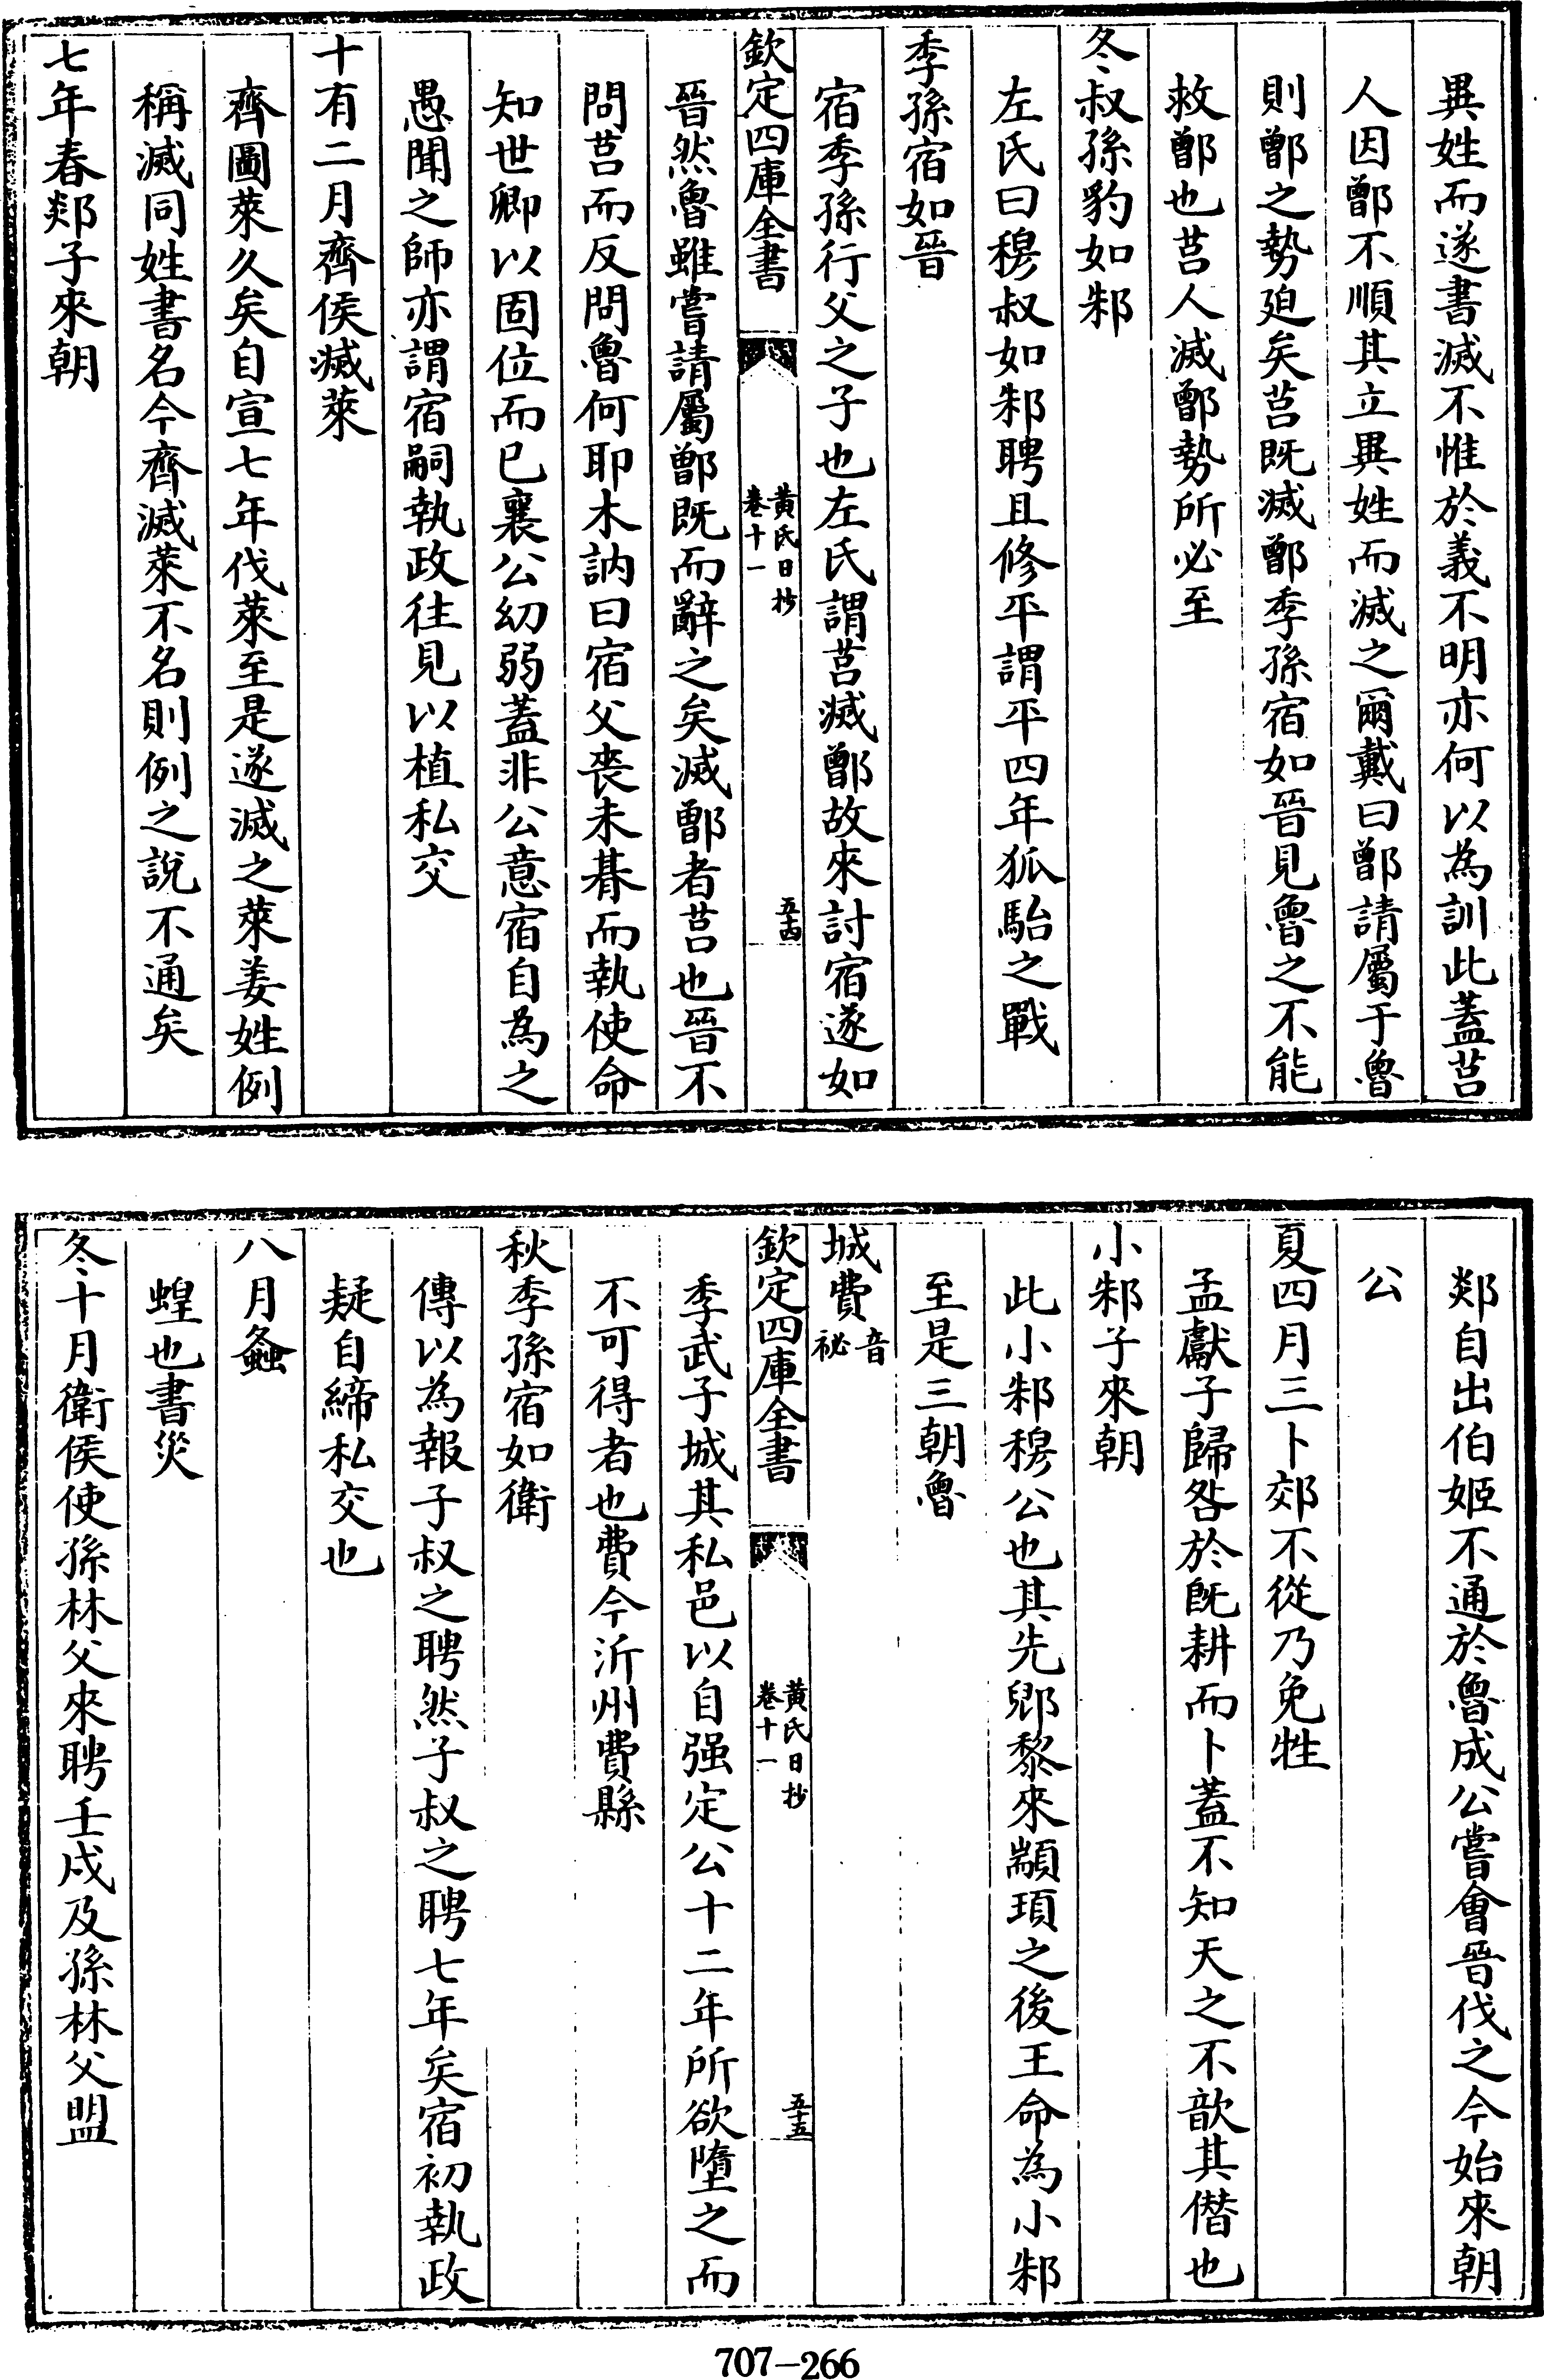 異姓而遂書滅不惟於義不明亦何以為訓此蓋莒
人因鄫不順其立異姓而滅之爾戴曰鄫請屬于魯
則鄫之勢廹矣莒既滅鄫季孫宿如晉見魯之不能
救鄫也莒人滅鄫勢所必至
冬叔孫豹如邾
左氏曰穆叔如邾聘且修平謂平四年狐駘之戰
季孫宿如晉
宿季孫行父之子也左氏謂莒滅鄫故來討宿遂如
欽定四庫全書
黃氏日抄
卷十一
五十四
晉然魯雖嘗請屬鄫既而辭之矣滅鄫者莒也晉不
問莒而反問魯何耶木訥曰宿父喪未朞而執使命
知世卿以固位而已襄公幼弱蓋非公意宿自為之
愚聞之師亦謂宿嗣執政往見以植私交
十有二月齊侯滅萊
齊圖萊久矣自宣七年伐萊至是遂滅之萊姜姓例
稱滅同姓書名今齊滅萊不名則例之說不通矣
七年春郯子來朝
郯自出伯姬不通於魯成公嘗會晉伐之今始來朝
公
夏四月三卜郊不從乃免牲
孟獻子歸咎於旣耕而卜蓋不知天之不歆其僭也
小邾子來朝
此小邾穆公也其先郳黎來顓頊之後王命為小邾
至是三朝魯
城費音祕
欽定四庫全書
黃氏日抄
卷十一
五十五
季武子城其私邑以自强定公十二年所欲墮之而
不可得者也費今沂州費縣
秋季孫宿如衛
傳以為報子叔之聘然子叔之聘七年矣宿初執政
疑自締私交也
八月螽
蝗也書災
冬十月衛侯使孫林父來聘壬戌及孫林父盟
707-266